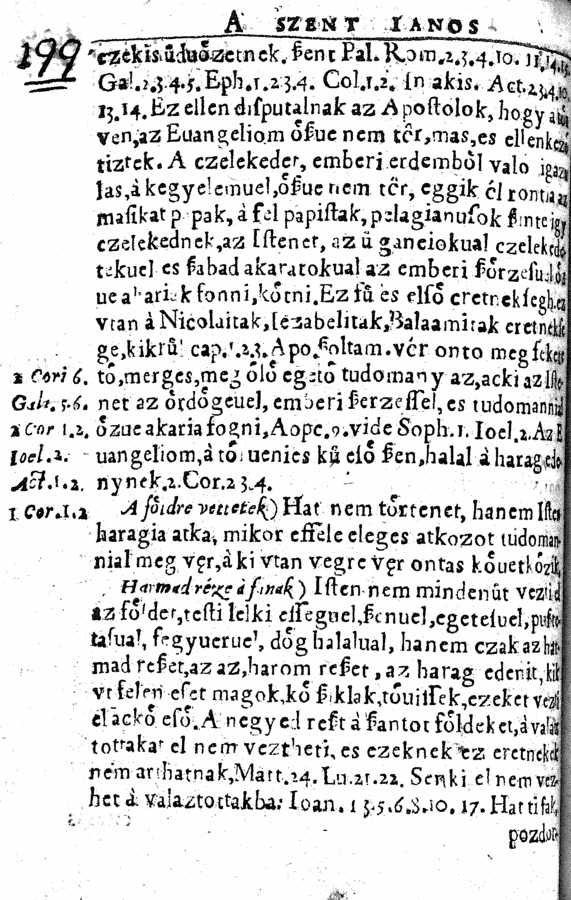 A SZENT IANOS
199
ezekis üduözetnek. ßent Pal. Rom.2.3.4.10. 11.14.15.
Gal.2.3.4.5. Eph.1.2 3.4. Col.1.2. in akis. Act.2.3.4.10.
13.14. Ez ellen disputalnak az Apostolok, hogy a tör
ven,az Euangeliom öszue nem têr,mas,es ellenkezö
tiztek. A czelekedet, emberi erdemböl valo igazu
las,à kegyelemuel,öszue nem têr, eggik êl rontia az
masikat p pak, à fel papistak, pelagianusok ßinte igy
czelekednek,az Istenet, az ü ganeiokual czelekede
tekuel es ßabad akaratokual az emberi ßörzesuel
ue akariak fonni,kötni. Ez fü es elsö eretneksegh,ez
vtan à Nicolaitak,Iezabelitak,Balaamitak eretnekse
ge,kikrül cap.1.2.3. Apo.ßoltam. vêr onto meg fekete
2 Cori 6. tö,merges,meg ölö egetö tudomany az,acki az Iste
Gala. 5.6. net az ördögeuel, emberi ßerzessel, es tudomannial
2 Cor 1.2. özue akaria fogni,Aopc.9.vide Soph.1. Ioel.2.Az E
Ioel.2. uangeliom,à töruenies kü esö ßen,halal à harag ede
Act.1.2. nynek.2.Cor.2 3.4.
1 Cor.1.2 A földre vettetek) Hat nem törtenet, hanem Isten
haragia atka, mikor effele eleges atkozot tudoman
nial meg vęr,à ki vtan vegre vęr ontas köuetközik,
Harmad réze à fanak) Isten nem mindenüt vezti el
az földet,testi lelki essegnel,ßenuel,egetesuel,puszti
tasual, fegyueruel, dög halalual, hanem czak az har
mad reßet,az az,harom reßet, az harag edenit, kik
vt felen eset magok,kö ßiklak,töuissek,ezeket vezti
el ackö esö. A negyed reszt à ßantot földeket,à valasz
tottakat el nem veztheti, es ezeknek ez eretnekek
nem arthatnak,Matt.24. Lu.21.22. Senki el nem vez-
het à valaztottakba: Ioan. 1 3.5.6.8.10. 17. Hat ti fak,
pozdor-